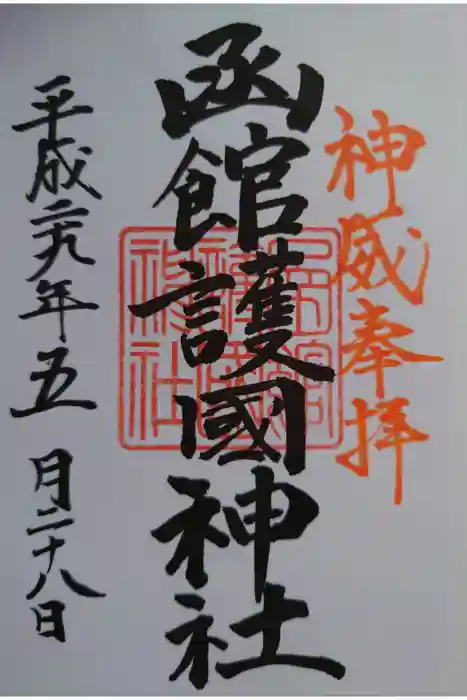 神威奉拝
函館護國神社
平成二十九年五月二十八日
函館護國神社